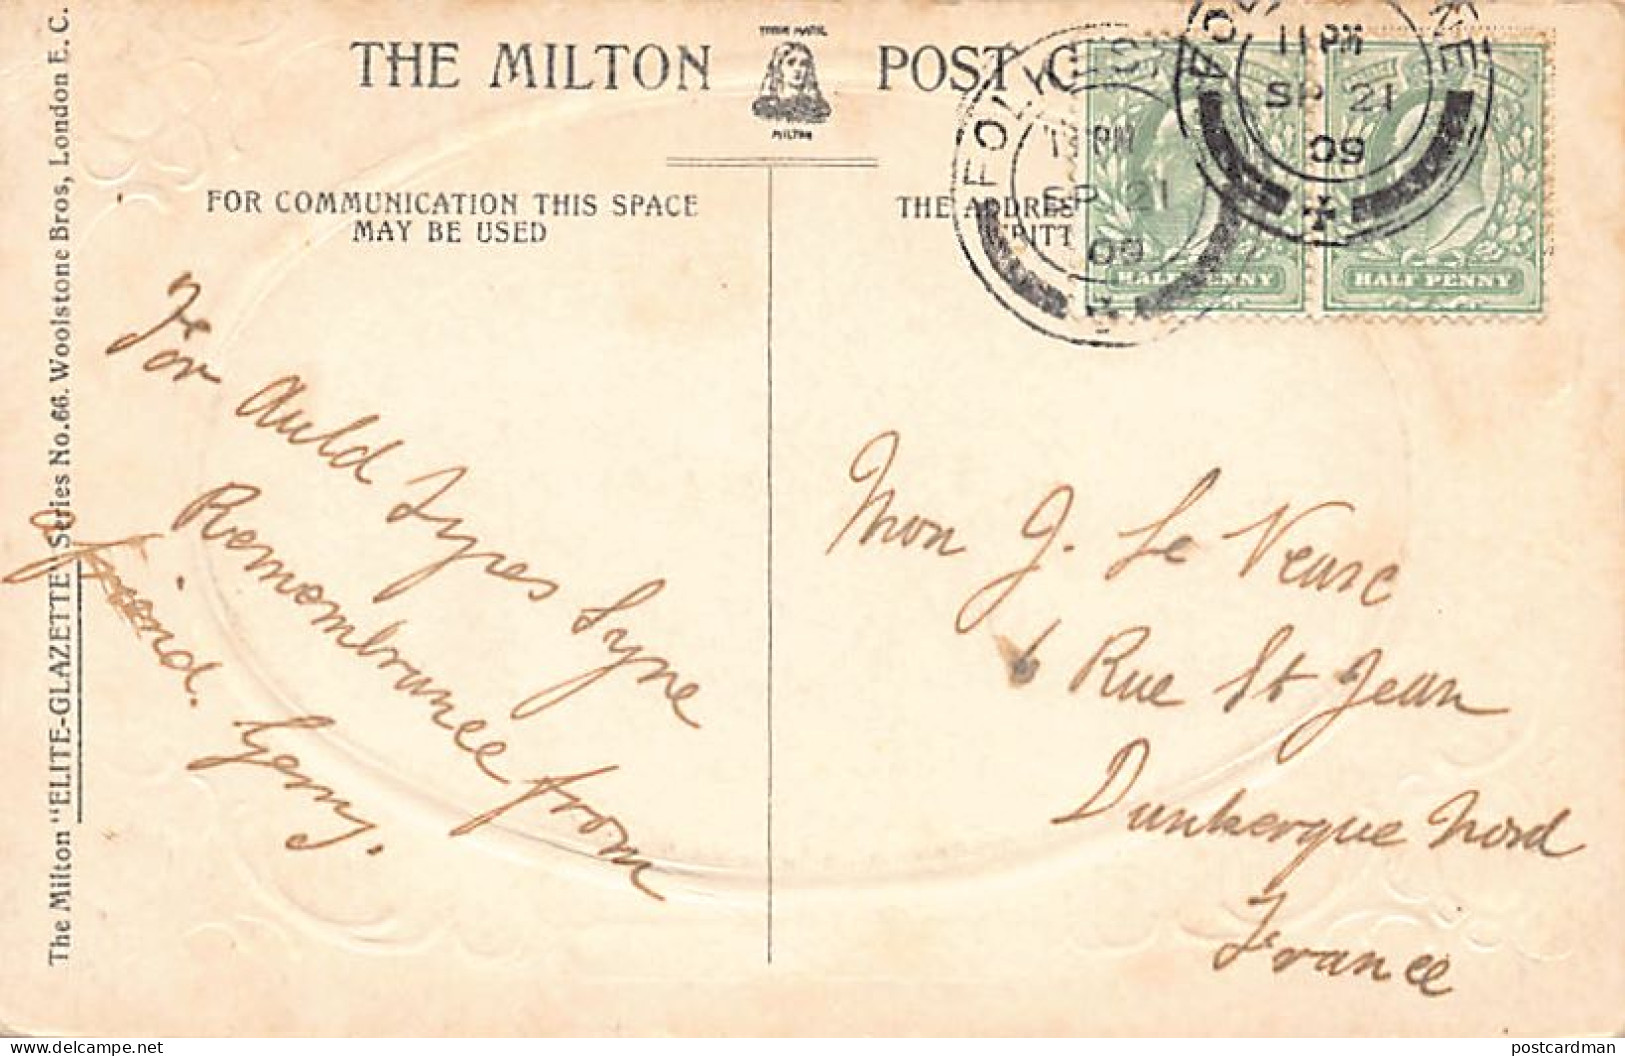 THE MILTON POST C
TRADE MARK
MILTON
FOR COMMUNICATION THIS SPACE
MAY BE USED
THE ADDRES
The Milton "ELITE-GLAZETTE" Series No.66. Woolstone Bros, London E.C.
11 PM
SP 21
09
PM
SP 21
09
HALF PENNY
HALF PENNY
For Auld Lyres Syne
Remembrance from
friend. Gerry.
Mon J. Le
6 Rue St Jean
Dunkerque Nord
France
postcardman